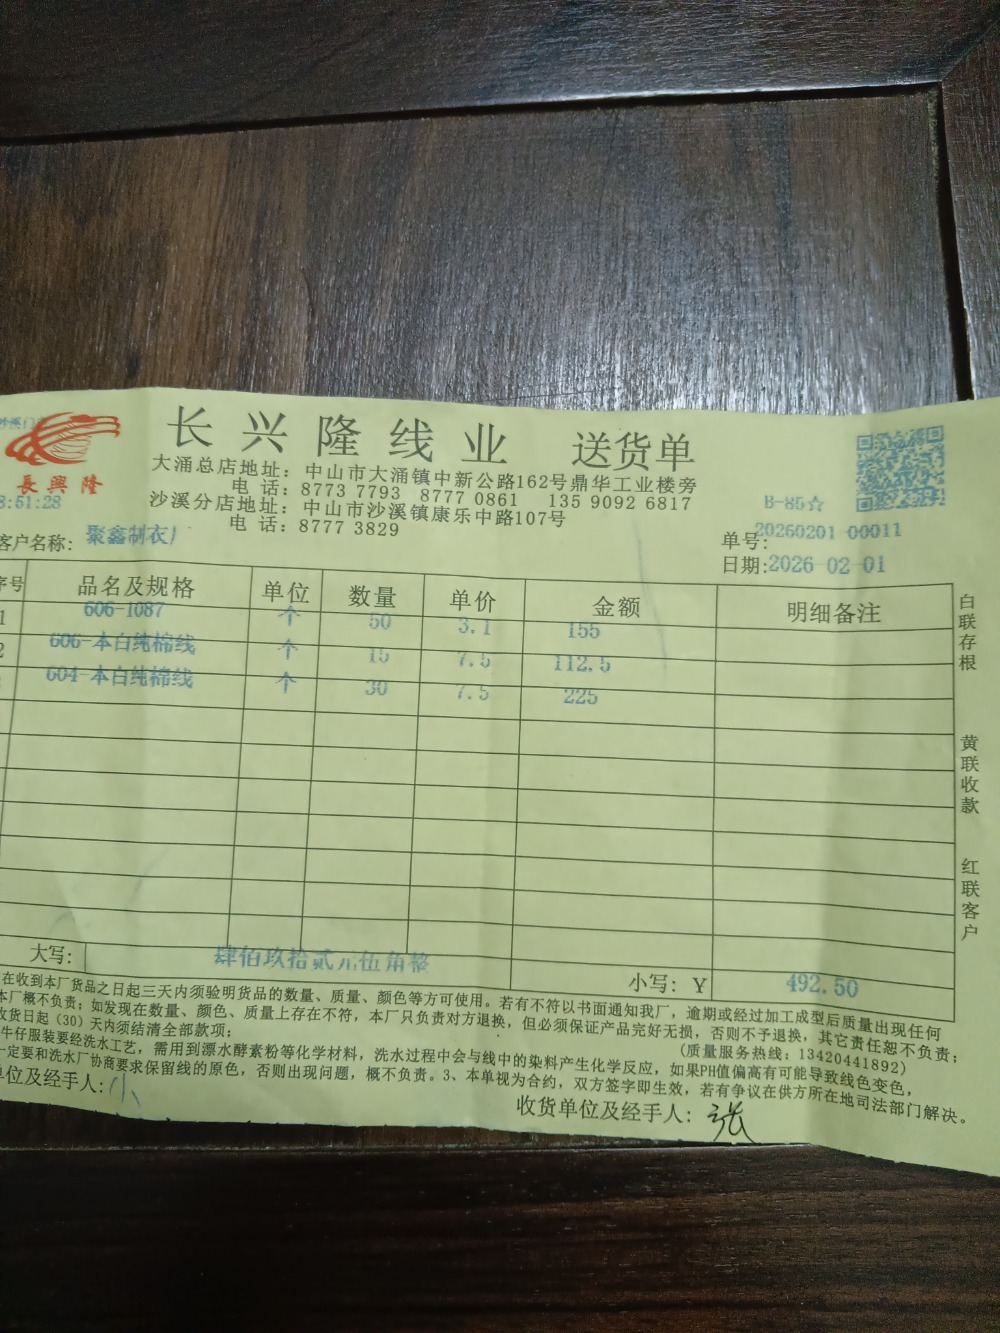 长兴隆线业 送货单
長興隆
大涌总店地址：中山市大涌镇中新公路162号鼎华工业楼旁
电 话：8773 7793 8777 0861 135 9092 6817
沙溪分店地址：中山市沙溪镇康乐中路107号
电 话：8777 3829
8:51:28
B-85☆
客户名称：聚鑫制衣厂
单号：20260201-00011
日期:2026-02-01
序号 品名及规格 单位 数量 单价 金额 明细备注
1 606-1087 个 50 3.1 155
2 606-本白纯棉线 个 15 7.5 112.5
604-本白纯棉线 个 30 7.5 225
白联存根
黄联收款
红联客户
大写： 肆佰玖拾贰元伍角整
小写：Y 492.50
在收到本厂货品之日起三天内须验明货品的数量、质量、颜色等方可使用。若有不符以书面通知我厂，逾期或经过加工成型后质量出现任何
本厂概不负责；如发现在数量、颜色、质量上存在不符，本厂只负责对方退换，但必须保证产品完好无损，否则不予退换，其它责任恕不负责；
收货日起（30）天内须结清全部款项；
（质量服务热线：13420441892）
牛仔服装要经洗水工艺，需用到漂水酵素粉等化学材料，洗水过程中会与线中的染料产生化学反应，如果PH值偏高有可能导致线色变色，
一定要和洗水厂协商要求保留线的原色，否则出现问题，概不负责。3、本单视为合约，双方签字即生效，若有争议在供方所在地司法部门解决。
单位及经手人：小
收货单位及经手人：张